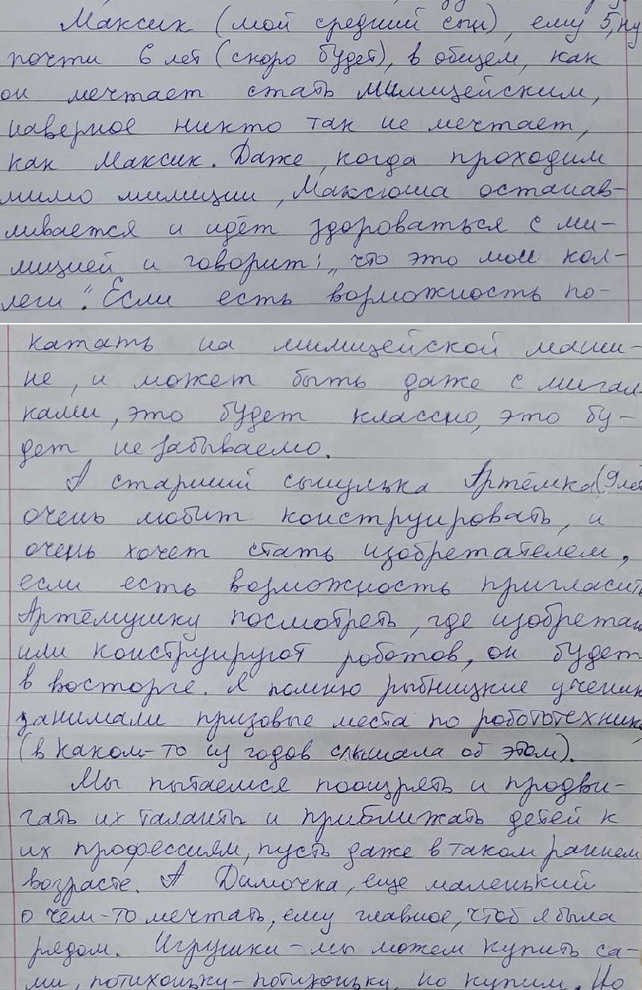 Максик (мой средний сын), ему 5, ну
почти 6 лет (скоро будет), в общем, как
он мечтает стать милицейским,
наверное никто так не мечтает,
как Максик. Даже, когда проходим
мимо милиции, Максюша останав-
ливается и идёт здороваться с ми-
лицией и говорит: „что это мои кол-
леги". Если есть возможность по-
катать на милицейской маши-
не, и может быть даже с мигал-
ками, это будет классно, это бу-
дет незабываемо.
А старший сынулька Артёмка (9 лет
очень любит конструировать, и
очень хочет стать изобретателем,
если есть возможность пригласить
Артёмушку посмотреть, где изобретаю
или конструируют роботов, он будет
в восторге. Я помню рыбницкие ученик
занимали призовые места по робототехник
(в каком-то из годов слышала об этом).
Мы пытаемся поощрять и продви-
гать их таланты и приближать детей к
их профессиям, пусть даже в таком раннем
возрасте. А Димочка, еще маленький
о чём-то мечтать, ему главное, чтоб я была
рядом. Игрушки – мы можем купить са-
ми, потихоньку-потихоньку, но купим. Но